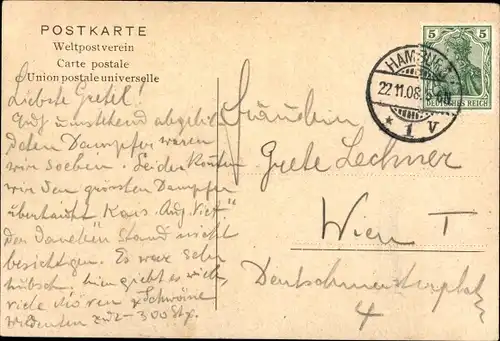 POSTKARTE
Weltpostverein
Carte postale
Union postale universelle
5
DEUTSCHES REICH
HAMBURG
22.11.08. 5-6N
* 1 V
Liebste Gretel!
Auf umstehend abgebil
deten Dampfer waren
wir soeben. Leider konnten
wir den grossten Dampfer
überhaupt Kais. Aug. Vict"
der daneben stand nicht
besichtigen. Es war sehr
hübsch. hier giebt es
viele Möven & Schwäne
300
Fräulein
Grete Lechner
Wien I
Deutschmeisterplatz
4